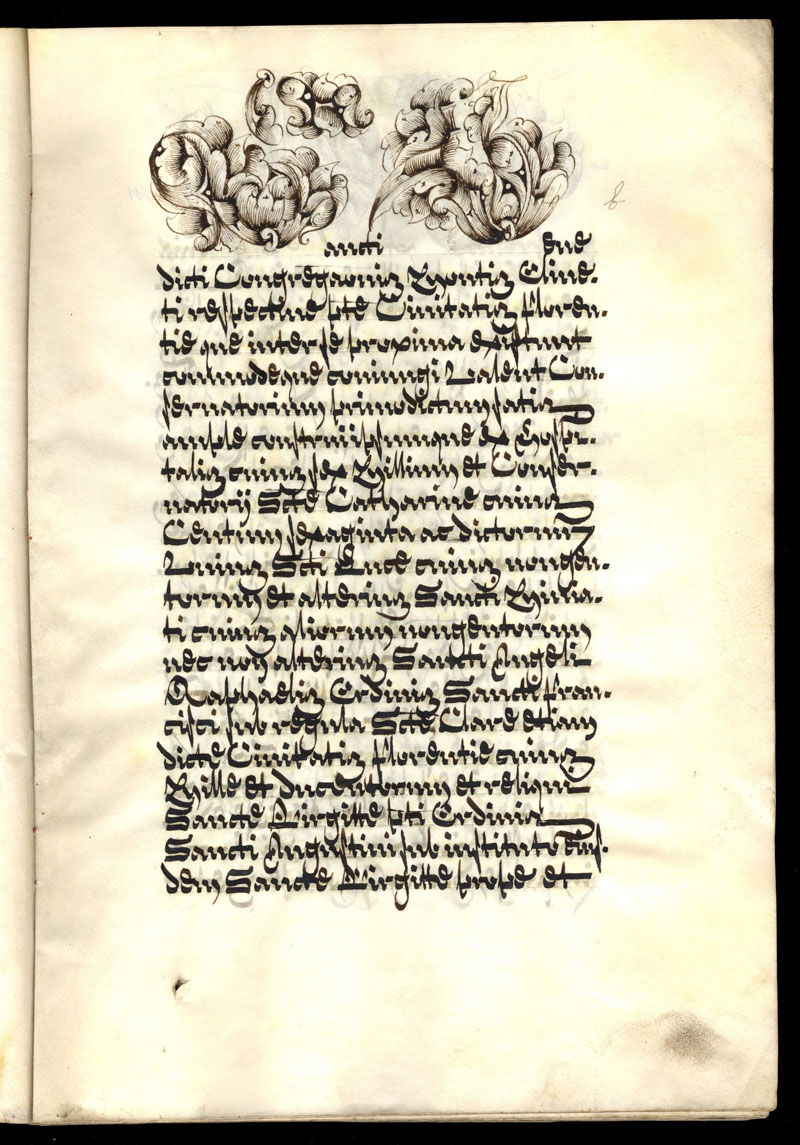 ancti ene
dicti Congregaonis Montis Olive-
ti respective pte Civitatis floren-
tie que inter se proxima existunt
commodeque coniungi Valent Con-
servatorium primodictum satis
ample construi ipsiumque ex Hospi-
talis cuius sex Millium et Conser-
natorij Scte Catharine cuius
Centum sexaginta ac dictorum
Vnius Scti Luce cuius nongen-
torum et alterius Sancti Minia-
ti cuius aliorum nongentorum
nec non alterius Sancti Angeli
Raphaelis Ordinis Sancti fran-
cisci sub regula Scte Clare etiam
dicte Civitatis florentie cuius
Mille et ducentorum et reliqui
Sancte Birgitte pti Ordinis
Sancti Augustini sub instituto eius-
dem Sancte Birgitte prope et